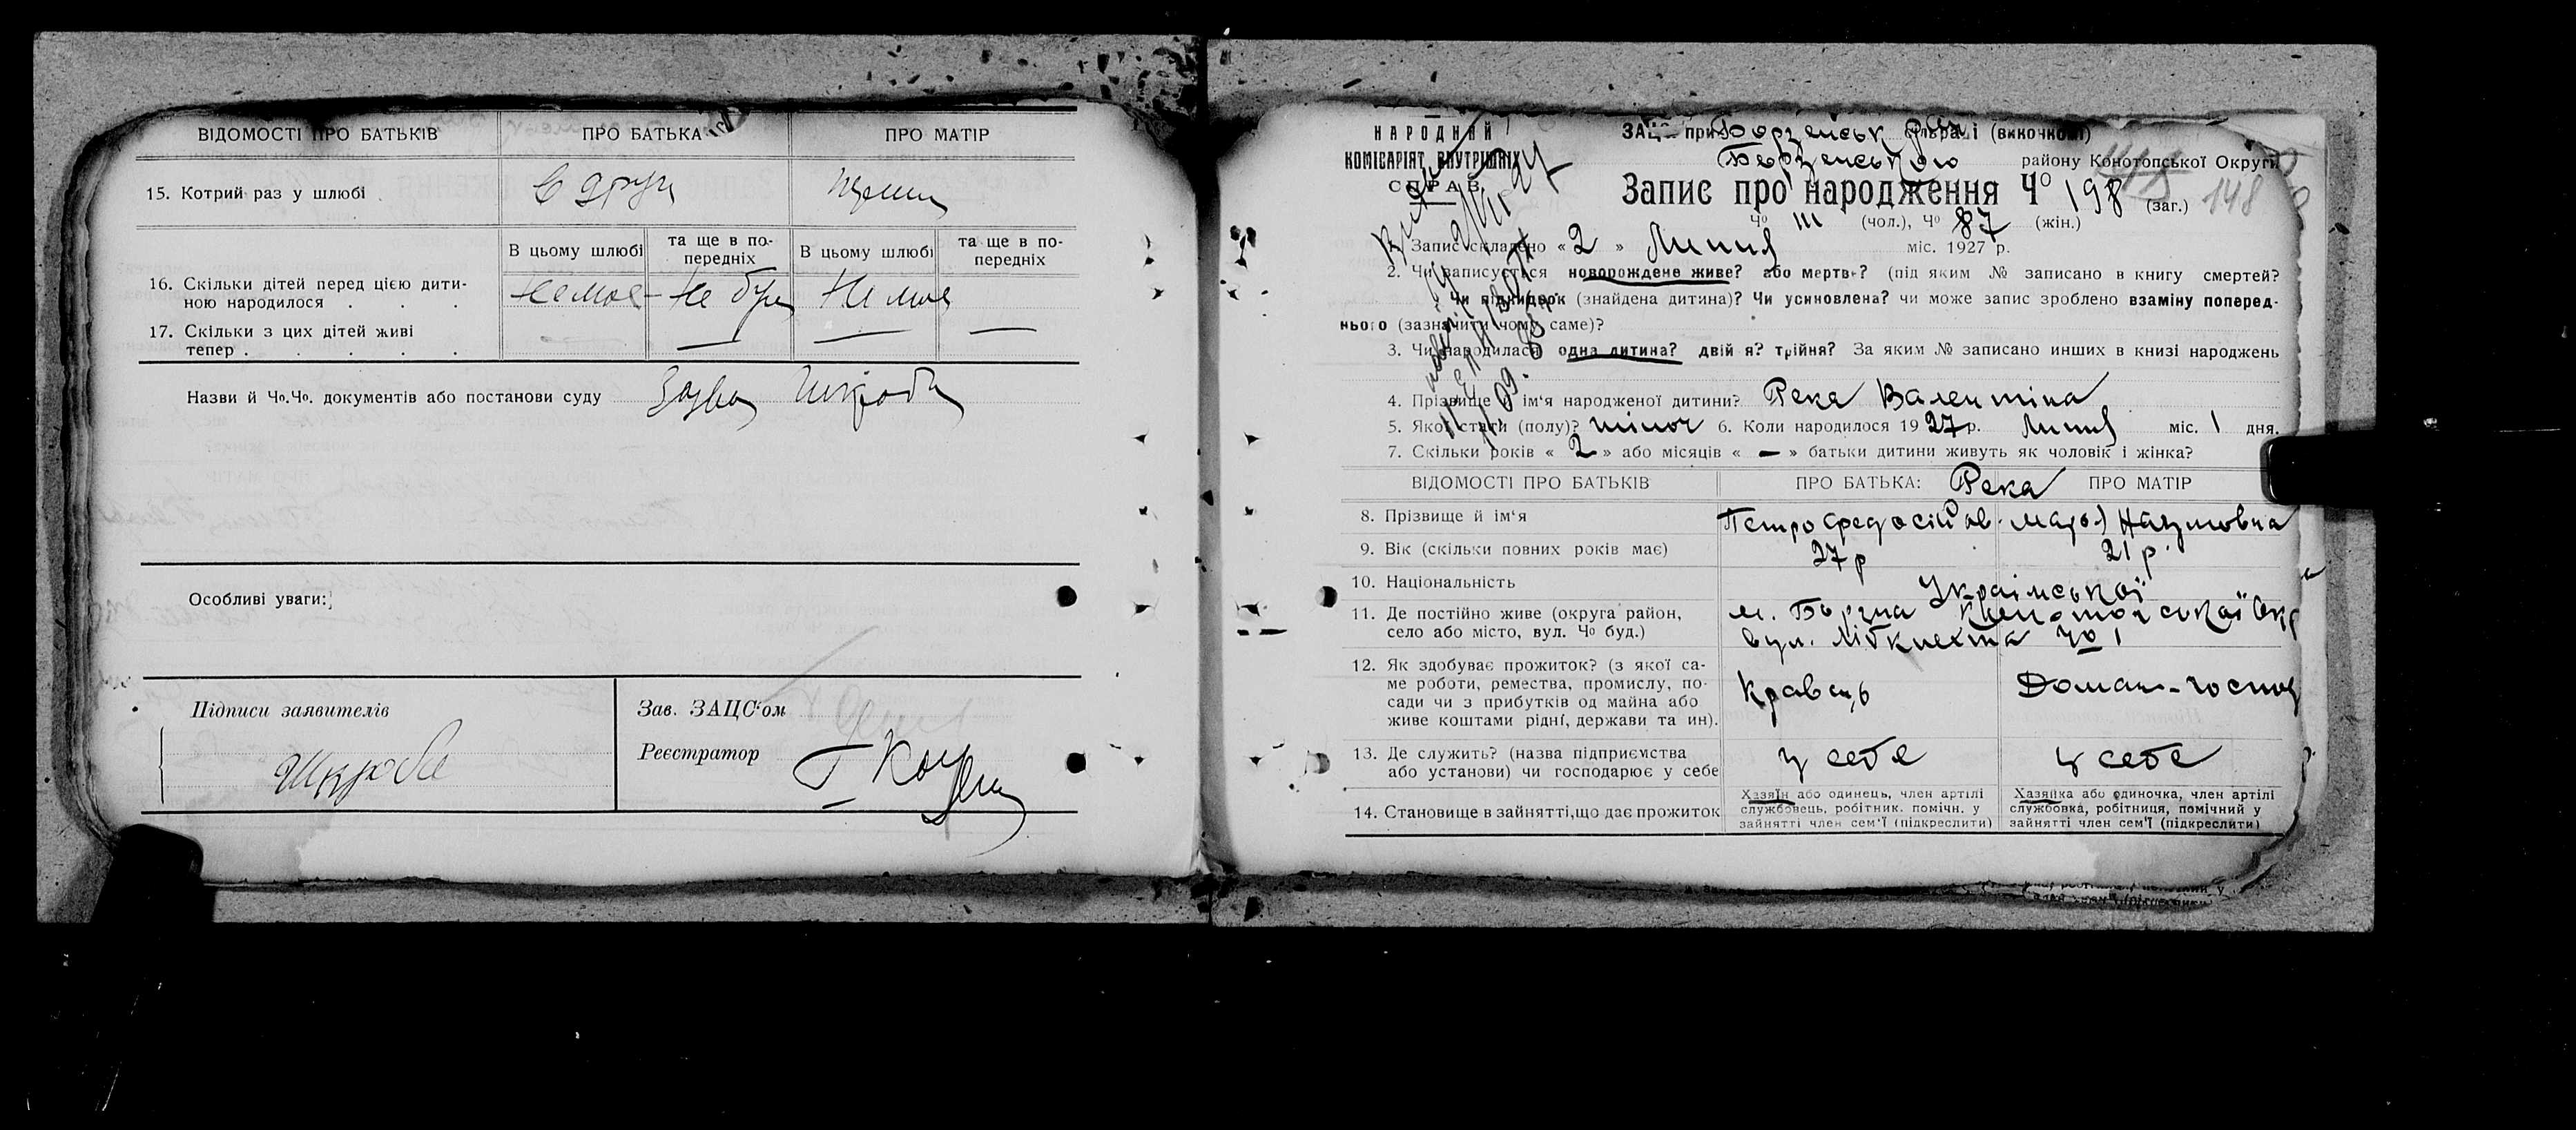 ВІДОМОСТІ ПРО БАТЬКІВ ПРО БАТЬКА ПРО МАТІР
15. Котрий раз у шлюбі
В цьому шлюбі та ще в по-передніх В цьому шлюбі та ще в по-передніх
16. Скільки дітей перед цією дити-
ною народилося . . . Немає Не було Немає
17. Скільки з цих дітей живі
тепер . . . . . — — — —
Назви й Чо.Чо. документів або постанови суду
Особливі уваги:
Підписи заявителів
Зав. ЗАЦС‘ом
Реєстратор
НАРОДНИЙ
КОМІСАРІЯТ ВНУТРІШНІХ
СПРАВ
ЗАЦС при Борзенськ (виконкомі)
Борзенського району Конотопської Округи
Запис про народження Чо 198 (заг.) 148
Чо (чол.), Чо 87 (жін.)
1. Запис складено « 2 » Липня міс. 1927 р.
2. Чи записується новорождене живе? або мертве? (під яким № записано в книгу смертей?
Чи підкидьок (знайдена дитина)? Чи усиновлена? чи може запис зроблено взаміну поперед-
нього (зазначити чому саме)?
3. Чи народилася одна дитина? двій я? трійня? За яким № записано инших в книзі народжень
4. Прізвище й ім‘я народженої дитини? Река Валентина
5. Якої стати (полу)? жіноч 6. Коли народилося 1927 р. Липня міс. 1 дня.
7. Скільки років « 2 » або місяців « — » батьки дитини живуть як чоловік і жінка?
ВІДОМОСТІ ПРО БАТЬКІВ ПРО БАТЬКА: Река ПРО МАТІР
8. Прізвище й ім‘я Петро Федосійов. Марья Наумовна
9. Вік (скільки повних років має) 27 р 21 р.
10. Національність Української
11. Де постійно живе (округа район, м. Борзна Конотопської Окр
село або місто, вул. Чо буд.) вул. Лібкнехта Чо 1
12. Як здобуває прожиток? (з якої са-
ме роботи, ремества, промислу, по-
сади чи з прибутків од майна або Кравець Домаш-господ
живе коштами рідні, держави та ин).
13. Де служить? (назва підприємства у себе у себе
або установи) чи господарює у себе
14. Становище в зайнятті,що дає прожиток
Хазяїн або одинець, член артілі
службовець, робітник. помічн. у
зайнятті член сем‘ї (підкреслити)
Хазяйка або одиночка, член артілі
службовка, робітниця, помічний у
зайнятті член сем‘ї (підкреслити)